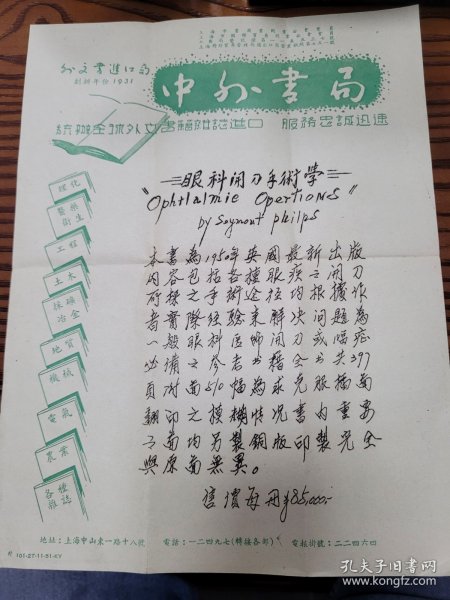 外文書進口局
創辦年份 1931
中外書局
統辦全球外文書籍雜誌進口 服務忠誠迅速
理化
醫藥衛生
工程
土木
採礦冶金
地質
機械
電氣
農業
各種雜誌
眼科開刀手術學
"Ophtlalmic Opertiones"
by Seymout philps
本書為1950年英國最新出版
內容包括各種眼疾之開刀
研接之手術途徑均根據作
者實際經驗来解决问题為
一般眼科医師開刀或临症
必備之參考书籍全书共397
頁附图510幅為求免服描圖
翻印之模糊情况書内重要
之圖均另製銅版印製完全
與原圖無異。
售價每册¥85,000.-
地址：上海中山東一路十八號 電話：一二四九七(轉接各部) 電報掛號：二二四六四
101-27-11-51-KY
孔夫子旧书网